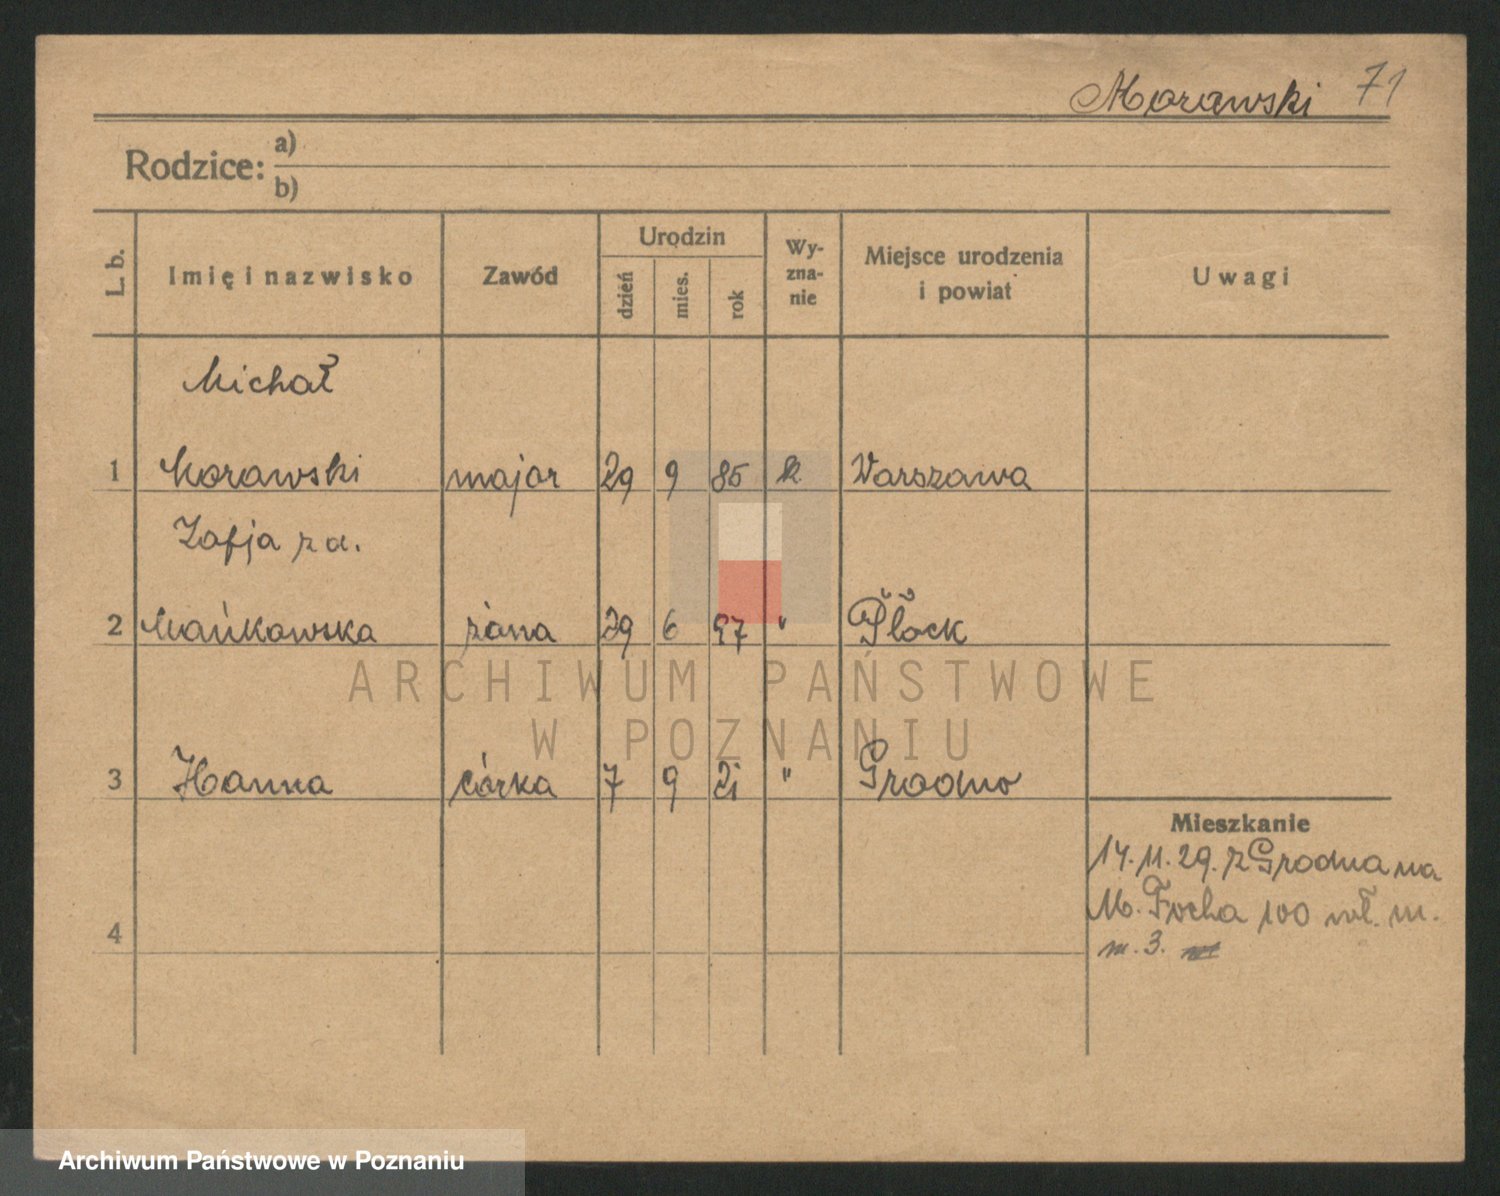 Morawski 71
Rodzice: a)
b)
L. b. Imię i nazwisko Zawód Urodzin dzień mies. rok Wy-zna-nie Miejsce urodzenia i powiat Uwagi
Michał
1 Morawski major 29 9 85 Warszawa
Zofja z d.
2 Mańkowska żona 29 6 97 " Płock
ARCHIWUM PAŃSTWOWE
W POZNANIU
3 Hanna córka 7 9 21 " Grodno
Mieszkanie
14.11.29. z Grodna na
M. Focha 100 wł. m.
4
m. 3.
Archiwum Państwowe w Poznaniu